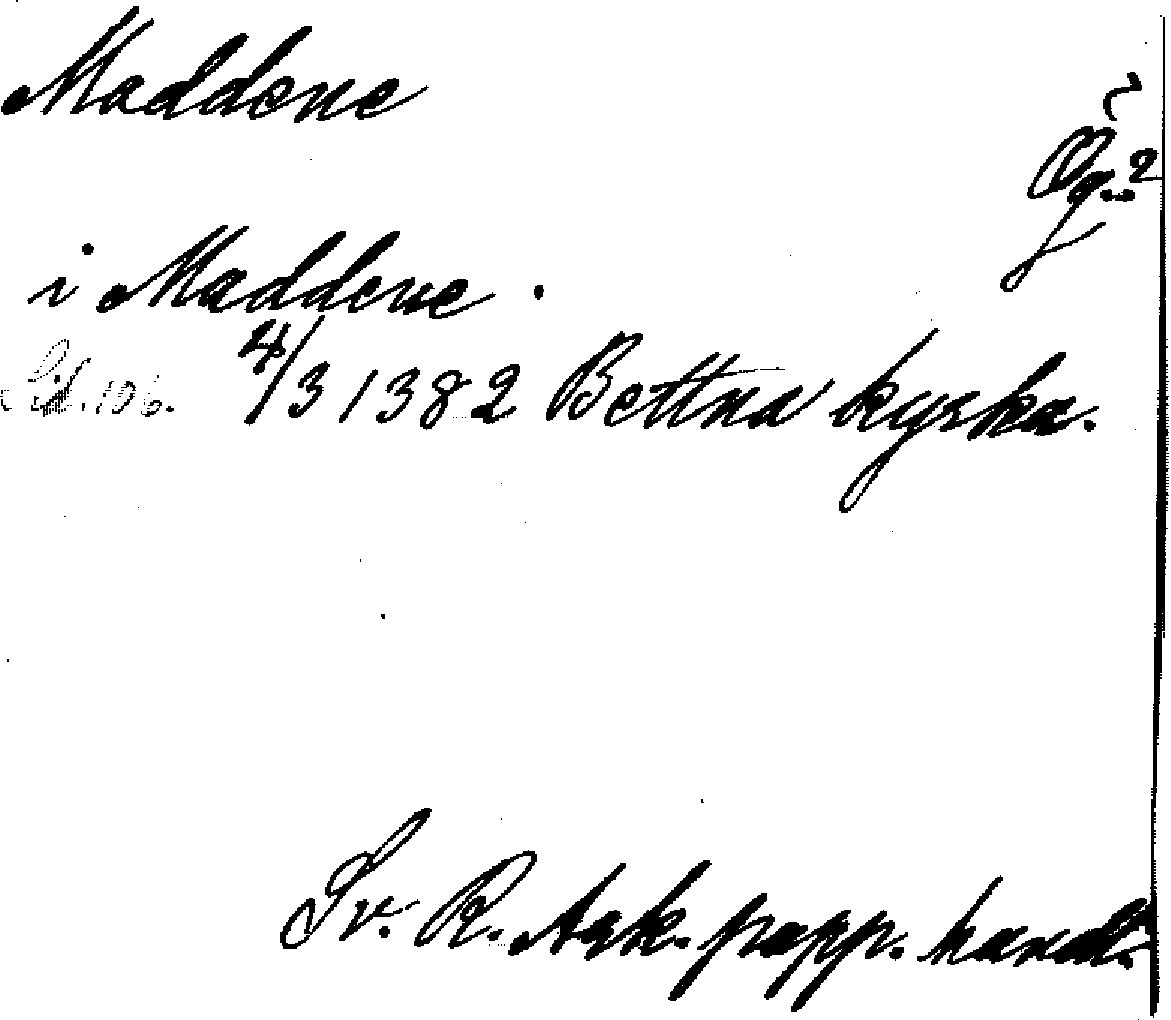 Maddene
Ög. ?
i Maddene.
Sid. 106. 4/3 1382 Bettna kyrka.
Sv. R. Ark. papp. handl.